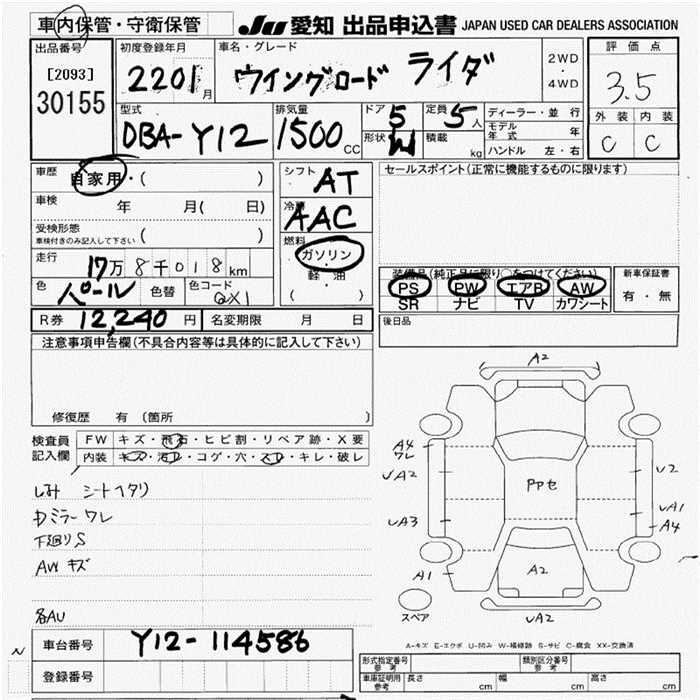 車内保管・守衛保管
JU 愛知 出品申込書 JAPAN USED CAR DEALERS ASSOCIATION
出品番号
[2093]
30155
初度登録年月
2201月
車名・グレード
ウイングロード ライダ
2WD
・
4WD
評価点
3.5
外装 内装
C C
型式
DBA-Y12
排気量
1500CC
ドア 5
形状 W
定員 5人
積載 kg
ディーラー・並行
モデル年式 年
ハンドル 左・右
車歴
自家用・( )
車検 年 月( 日)
受検形態
車検付きのみ記入して下さい ( )
走行
17万8千018km
色 パール 色替 色コード QX1
シフト AT
冷房 AAC
燃料
ガソリン
・
軽油
( )
セールスポイント(正常に機能するものに限ります)
装備品(純正品に限り○をつけてください)
PS PW エアB AW
SR ナビ TV カワシート
新車保証書
有・無
後日品
R券 12,240円 名変期限 月 日
注意事項申告欄(不具合内容等は具体的に記入して下さい)
修復歴 有 〔箇所
検査員記入欄
FW キズ・飛石・ヒビ割・リペア跡・X要
内装 キズ・汚レ・コゲ・穴・スレ・キレ・破レ
しみ シートヘタリ
カミラー ワレ
下廻りS
AW キズ
各AU
A2
A4
ワレ
UA2
UA3
A1
PPセ
A2
U2
UA1
A4
UA2
スペア
A-キズ E-エクボ U-凹み W-補修跡 S-サビ C-腐食 XX-交換済
N
車台番号 Y12-114586
登録番号
形式指定番号 参考
類別区分番号 参考
車庫証明用 参考 長さ cm 幅 cm 高さ cm